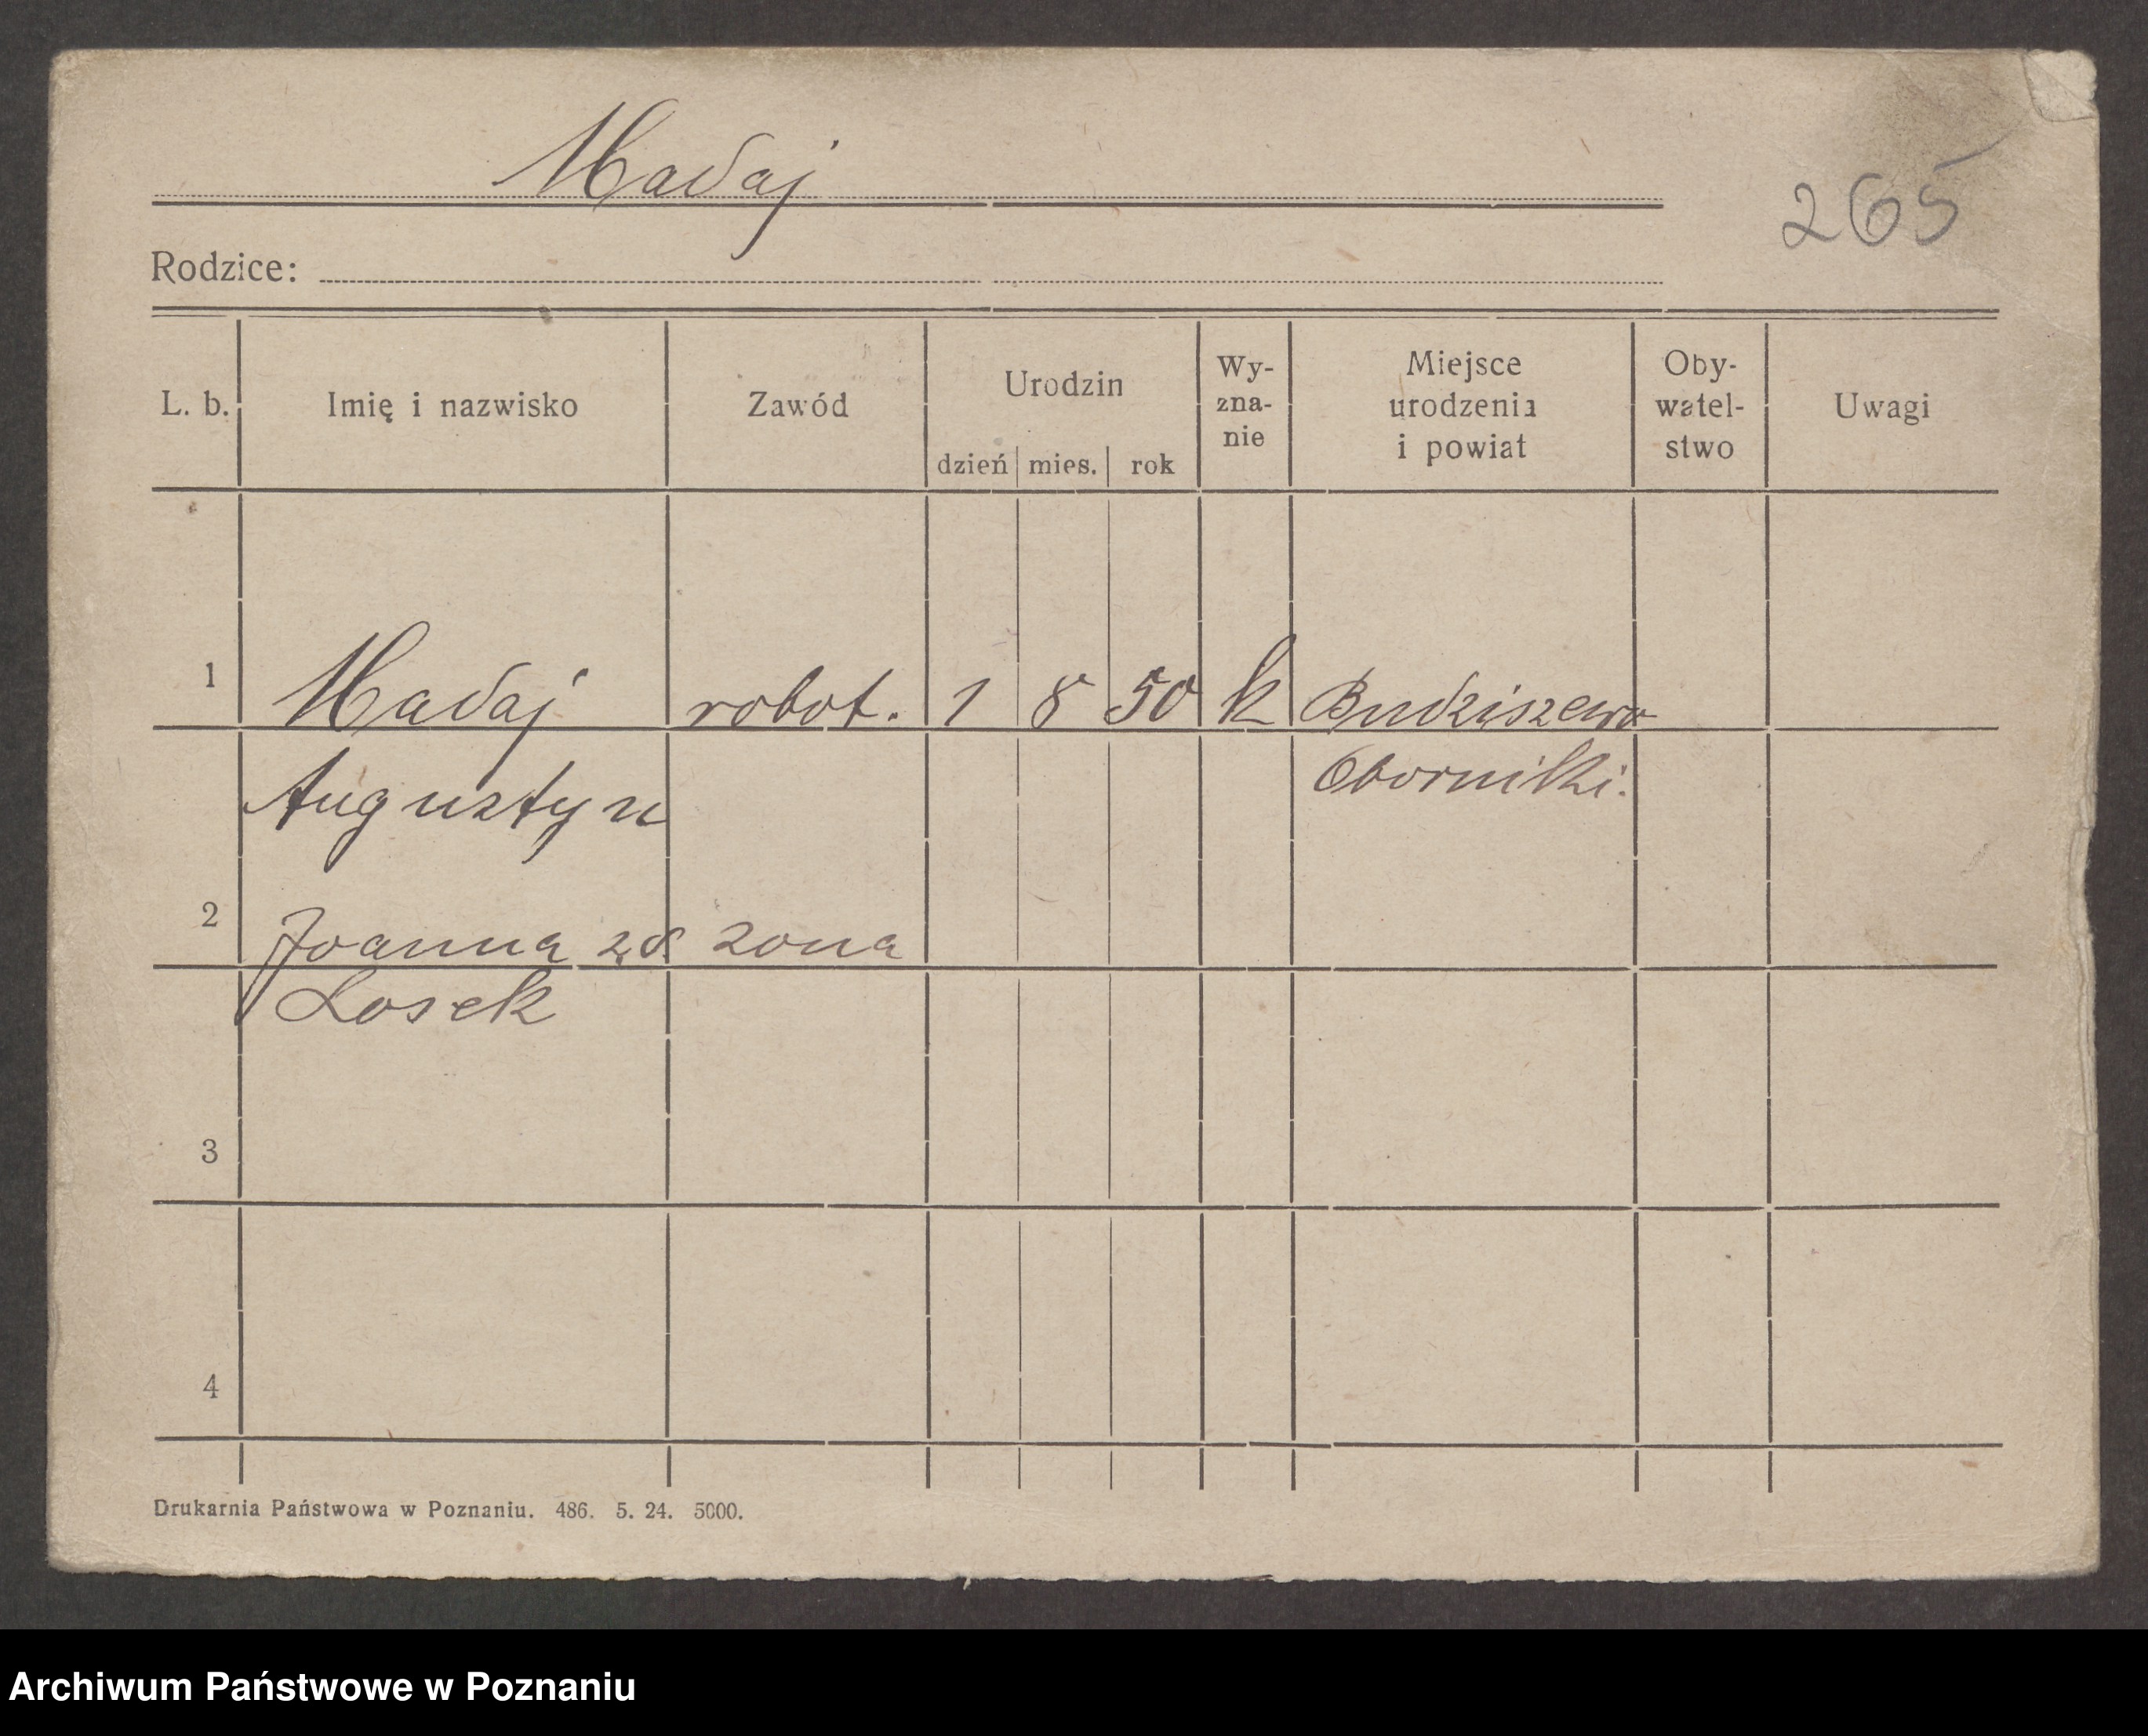 Madaj
265
Rodzice:
L. b. Imię i nazwisko Zawód Urodzin dzień mies. rok Wy-zna-nie Miejsce urodzenia i powiat Oby-watel-stwo Uwagi
1 Madaj robot. 1 8 50 k Budziszewo
Augustyn Oborniki.
2 Joanna zd zona
Losek
3
4
Drukarnia Państwowa w Poznaniu. 486. 5. 24. 5000.
Archiwum Państwowe w Poznaniu